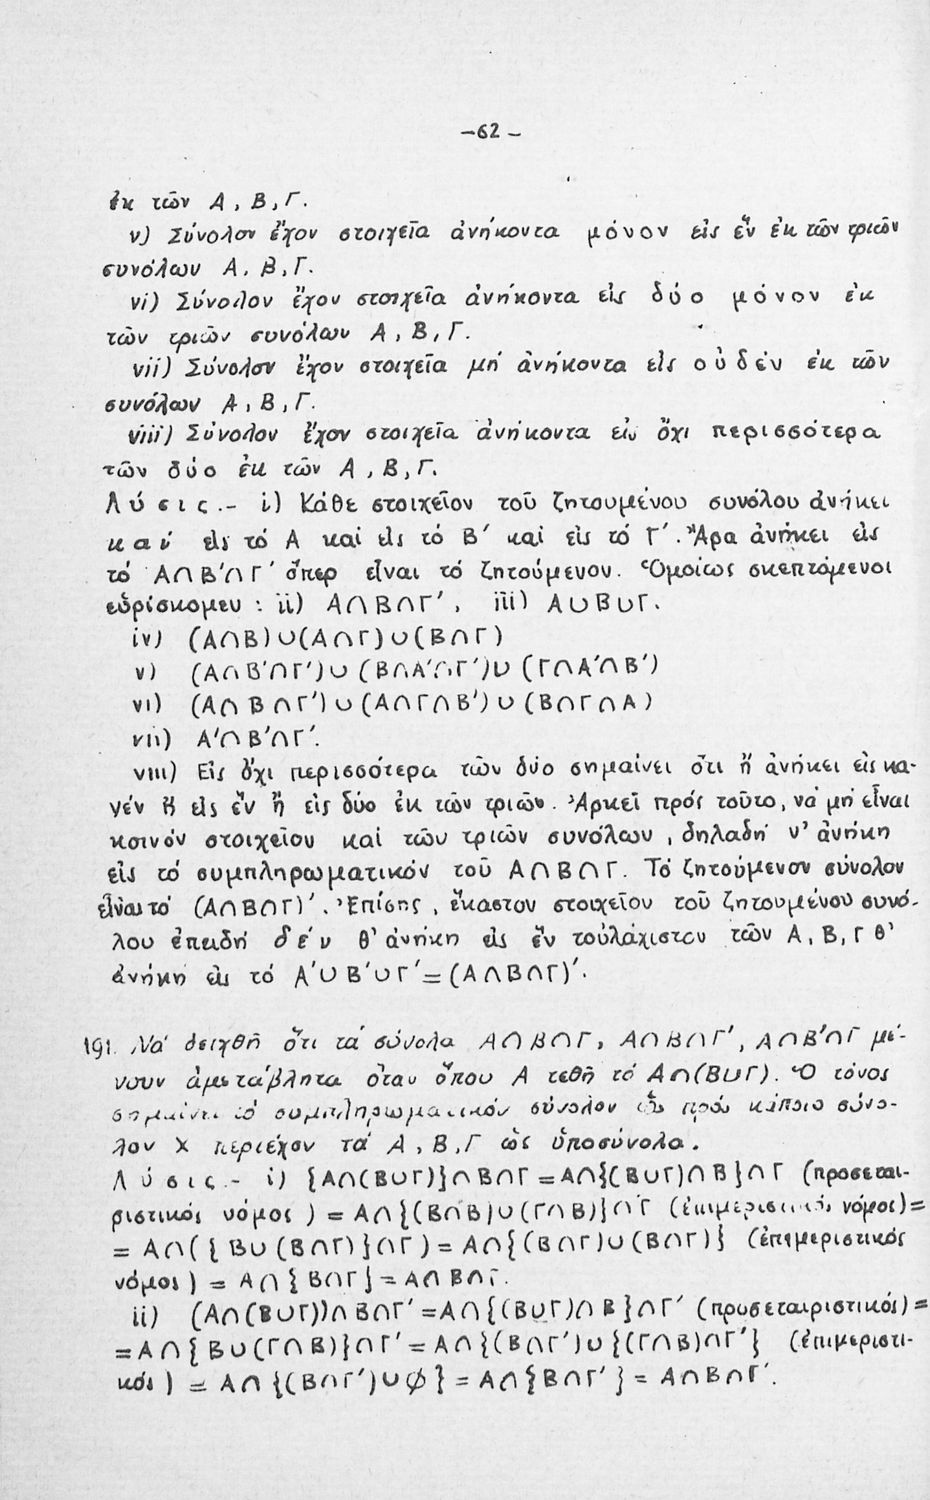 -62-
ἐκ τῶν Α, Β, Γ.
v) Σύνολον ἔχον στοιχεῖα ἀνήκοντα μόνον εἰς ἓν ἐκ τῶν τριῶν
συνόλων Α, Β, Γ.
vi) Σύνολον ἔχον στοιχεῖα ἀνήκοντα εἰς δύο μόνον ἐκ
τῶν τριῶν συνόλων Α, Β, Γ.
vii) Σύνολον ἔχον στοιχεῖα μή ἀνήκοντα εἰς οὐδέν ἐκ τῶν
συνόλων Α, Β, Γ.
viii) Σύνολον ἔχον στοιχεῖα ἀνήκοντα εἰς ὄχι περισσότερα
τῶν δύο ἐκ τῶν Α, Β, Γ.
Λύσις.- i) Κάθε στοιχεῖον τοῦ ζητουμένου συνόλου ἀνήκει
καί εἰς τό Α καί εἰς τό Β′ καί εἰς τό Γ′. Ἄρα ἀνήκει εἰς
τό Α∩Β′∩Γ′ ὅπερ εἶναι τό ζητούμενον. Ὁμοίως σκεπτόμενοι
εὑρίσκομεν : ii) Α∩Β∩Γ′, iii) Α∪Β∪Γ.
iv) (Α∩Β)∪(Α∩Γ)∪(Β∩Γ)
v) (Α∩Β′∩Γ′)∪(Β∩Α′∩Γ′)∪(Γ∩Α′∩Β′)
vi) (Α∩Β∩Γ′)∪(Α∩Γ∩Β′)∪(Β∩Γ∩Α)
vii) Α′∩Β′∩Γ′.
viii) Εἰς ὄχι περισσότερα τῶν δύο σημαίνει ὅτι ἤ ἀνήκει εἰς κα-
νέν ἤ εἰς ἕν ἤ εἰς δύο ἐκ τῶν τριῶν. Ἀρκεῖ πρός τοῦτο, νά μή εἶναι
κοινόν στοιχεῖον καί τῶν τριῶν συνόλων, δηλαδή ν' ἀνήκη
εἰς τό συμπληρωματικόν τοῦ Α∩Β∩Γ. Τό ζητούμενον σύνολον
εἶναι τό (Α∩Β∩Γ)′. Ἐπίσης, ἕκαστον στοιχεῖον τοῦ ζητουμένου συνό-
λου ἐπειδή δέν θ' ἀνήκη εἰς ἕν τοὐλάχιστον τῶν Α, Β, Γ θ'
ἀνήκη εἰς τό Α′∪Β′∪Γ′=(Α∩Β∩Γ)′.
191. Νά δειχθῆ ὅτι τά σύνολα Α∩Β∩Γ, Α∩Β∩Γ′, Α∩Β′∩Γ μέ-
νουν ἀμετάβλητα ὅταν ὅπου Α τεθῆ τό Α∩(Β∪Γ). Ὁ τόνος
σημαίνει τό συμπληρωματικόν σύνολον ὡς πρός κάποιο σύνο-
λον Χ περιέχον τά Α, Β, Γ ὡς ὑποσύνολα.
Λύσις.- i) {Α∩(Β∪Γ)}∩Β∩Γ=Α∩{(Β∪Γ)∩Β}∩Γ (προσεται-
ριστικός νόμος) = Α∩{(Β∩Β)∪(Γ∩Β)}∩Γ (ἐπιμεριστικός νόμος)=
= Α∩({Β∪(Β∩Γ)}∩Γ)= Α∩{(Β∩Γ)∪(Β∩Γ)} (ἐπιμεριστικός
νόμος) = Α∩{Β∩Γ}=Α∩Β∩Γ.
ii) (Α∩(Β∪Γ))∩Β∩Γ′=Α∩{(Β∪Γ)∩Β}∩Γ′ (προσεταιριστικός)=
=Α∩{Β∪(Γ∩Β)}∩Γ′=Α∩{(Β∩Γ′)∪{(Γ∩Β)∩Γ′} (ἐπιμεριστι-
κός) = Α∩{(Β∩Γ′)∪∅}=Α∩{Β∩Γ′}= Α∩Β∩Γ′.